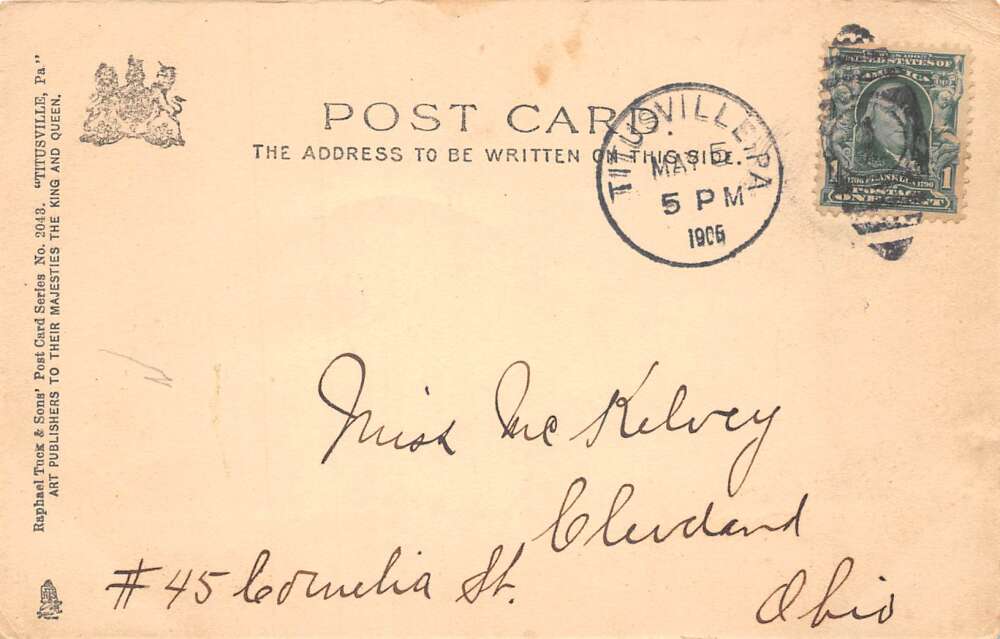 Raphael Tuck & Sons' Post Card Series No. 2043. "TITUSVILLE, Pa."
ART PUBLISHERS TO THEIR MAJESTIES THE KING AND QUEEN.
POST CARD.
THE ADDRESS TO BE WRITTEN ON THIS SIDE.
TITUSVILLE, PA
MAY 5
5 PM
1906
UNITED STATES OF
AMERICA
FRANKLIN
1 POSTAGE 1
ONE CENT
Miss McKelvey
Cleveland
#45 Cornelia St.
Ohio